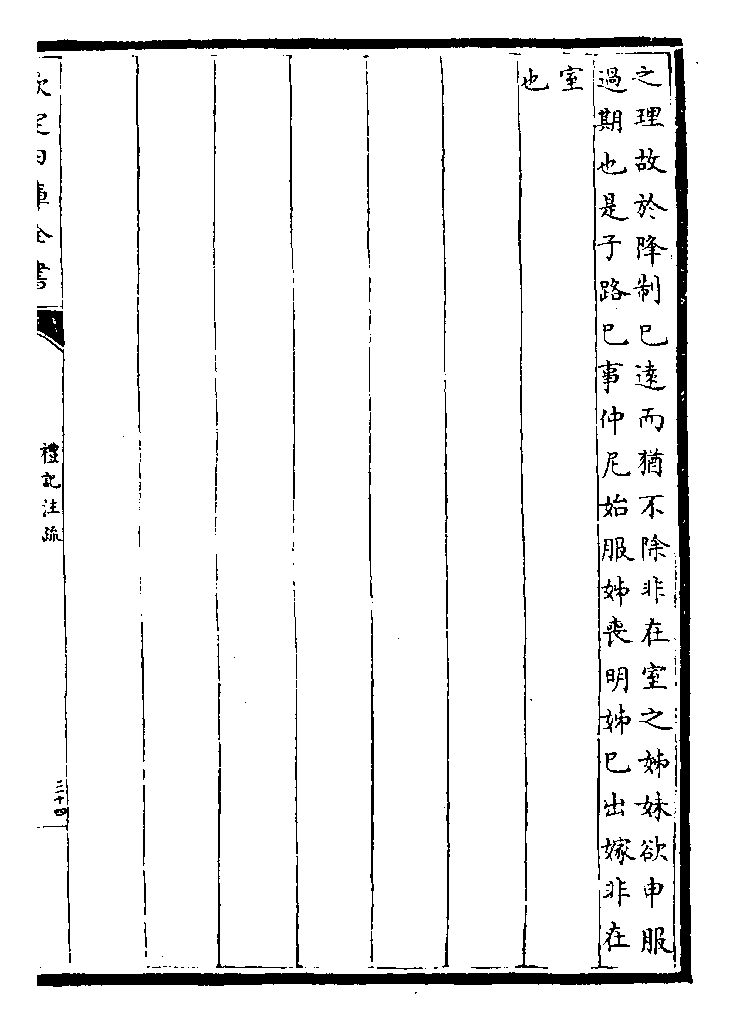 之理故於降制已逺而猶不除非在室之姊妹欲申服
過期也是子路已事仲尼始服姊喪明姊已出嫁非在
室
也
欽定四庫全書
禮記注疏
三十四